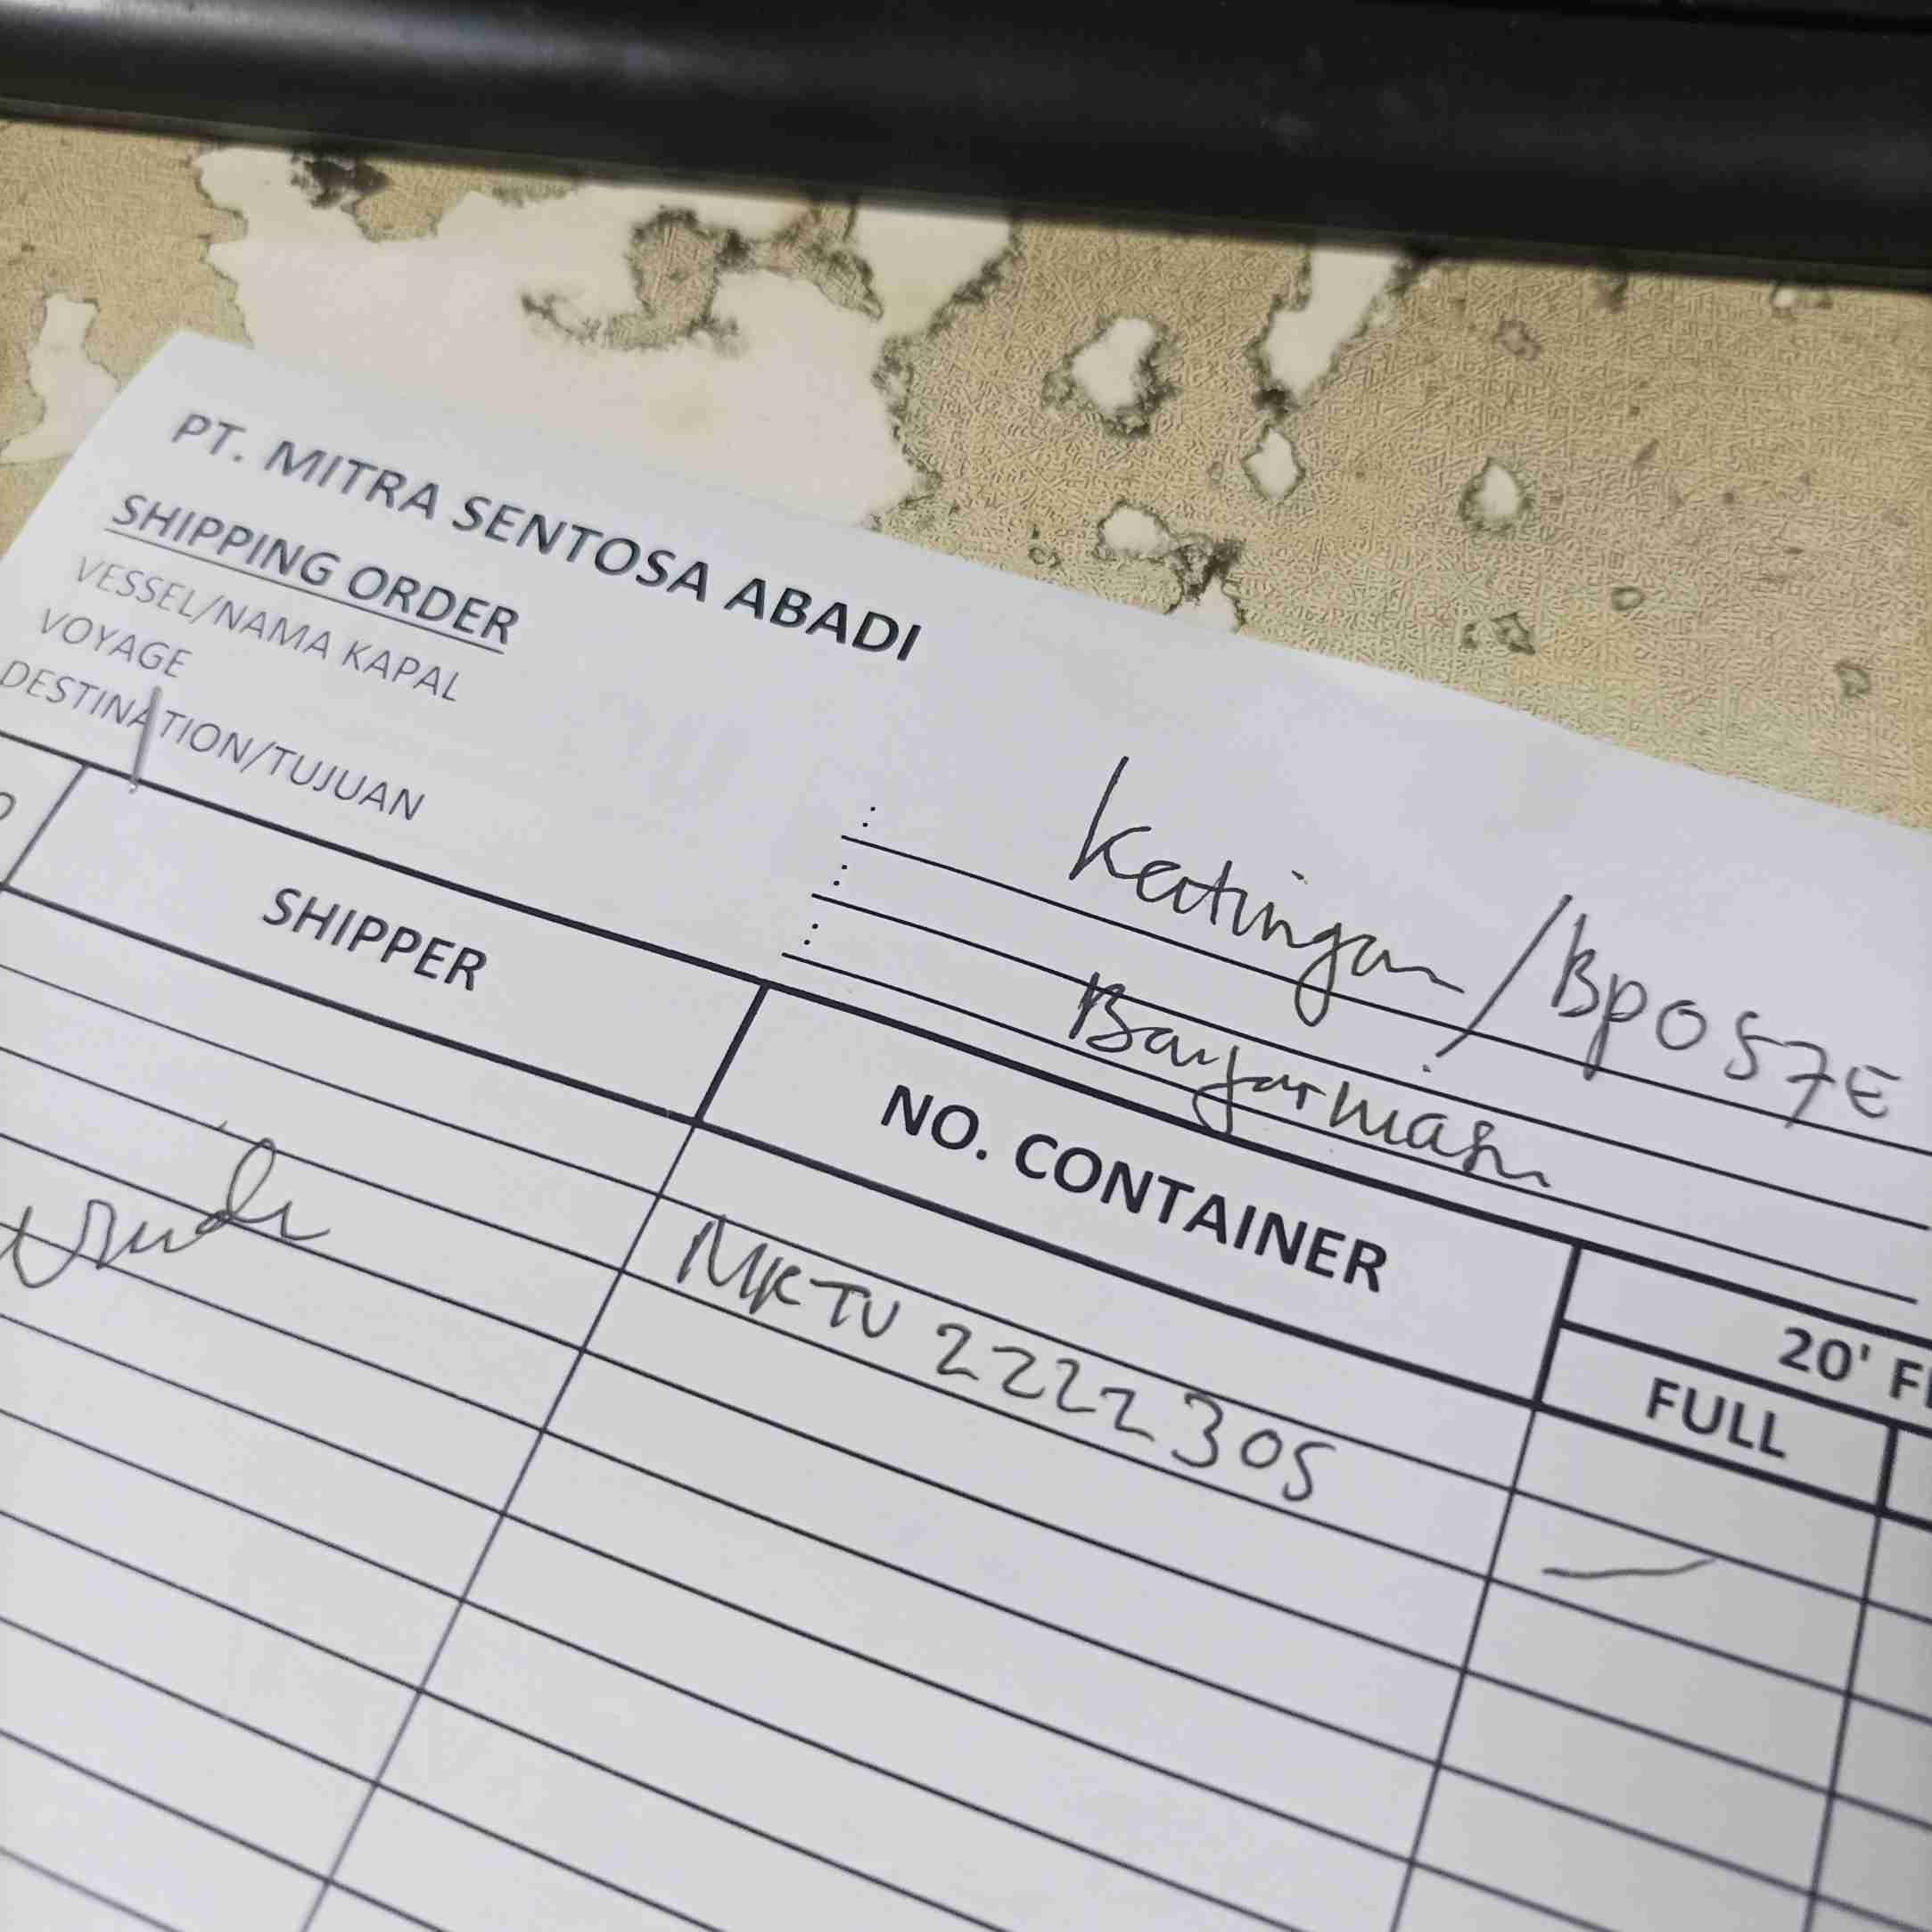 PT. MITRA SENTOSA ABADI
SHIPPING ORDER
VESSEL/NAMA KAPAL : Katingan/BP057E
VOYAGE :
DESTINATION/TUJUAN : Banjarmasin
SHIPPER NO. CONTAINER 20' F
FULL
MKTU 2222305